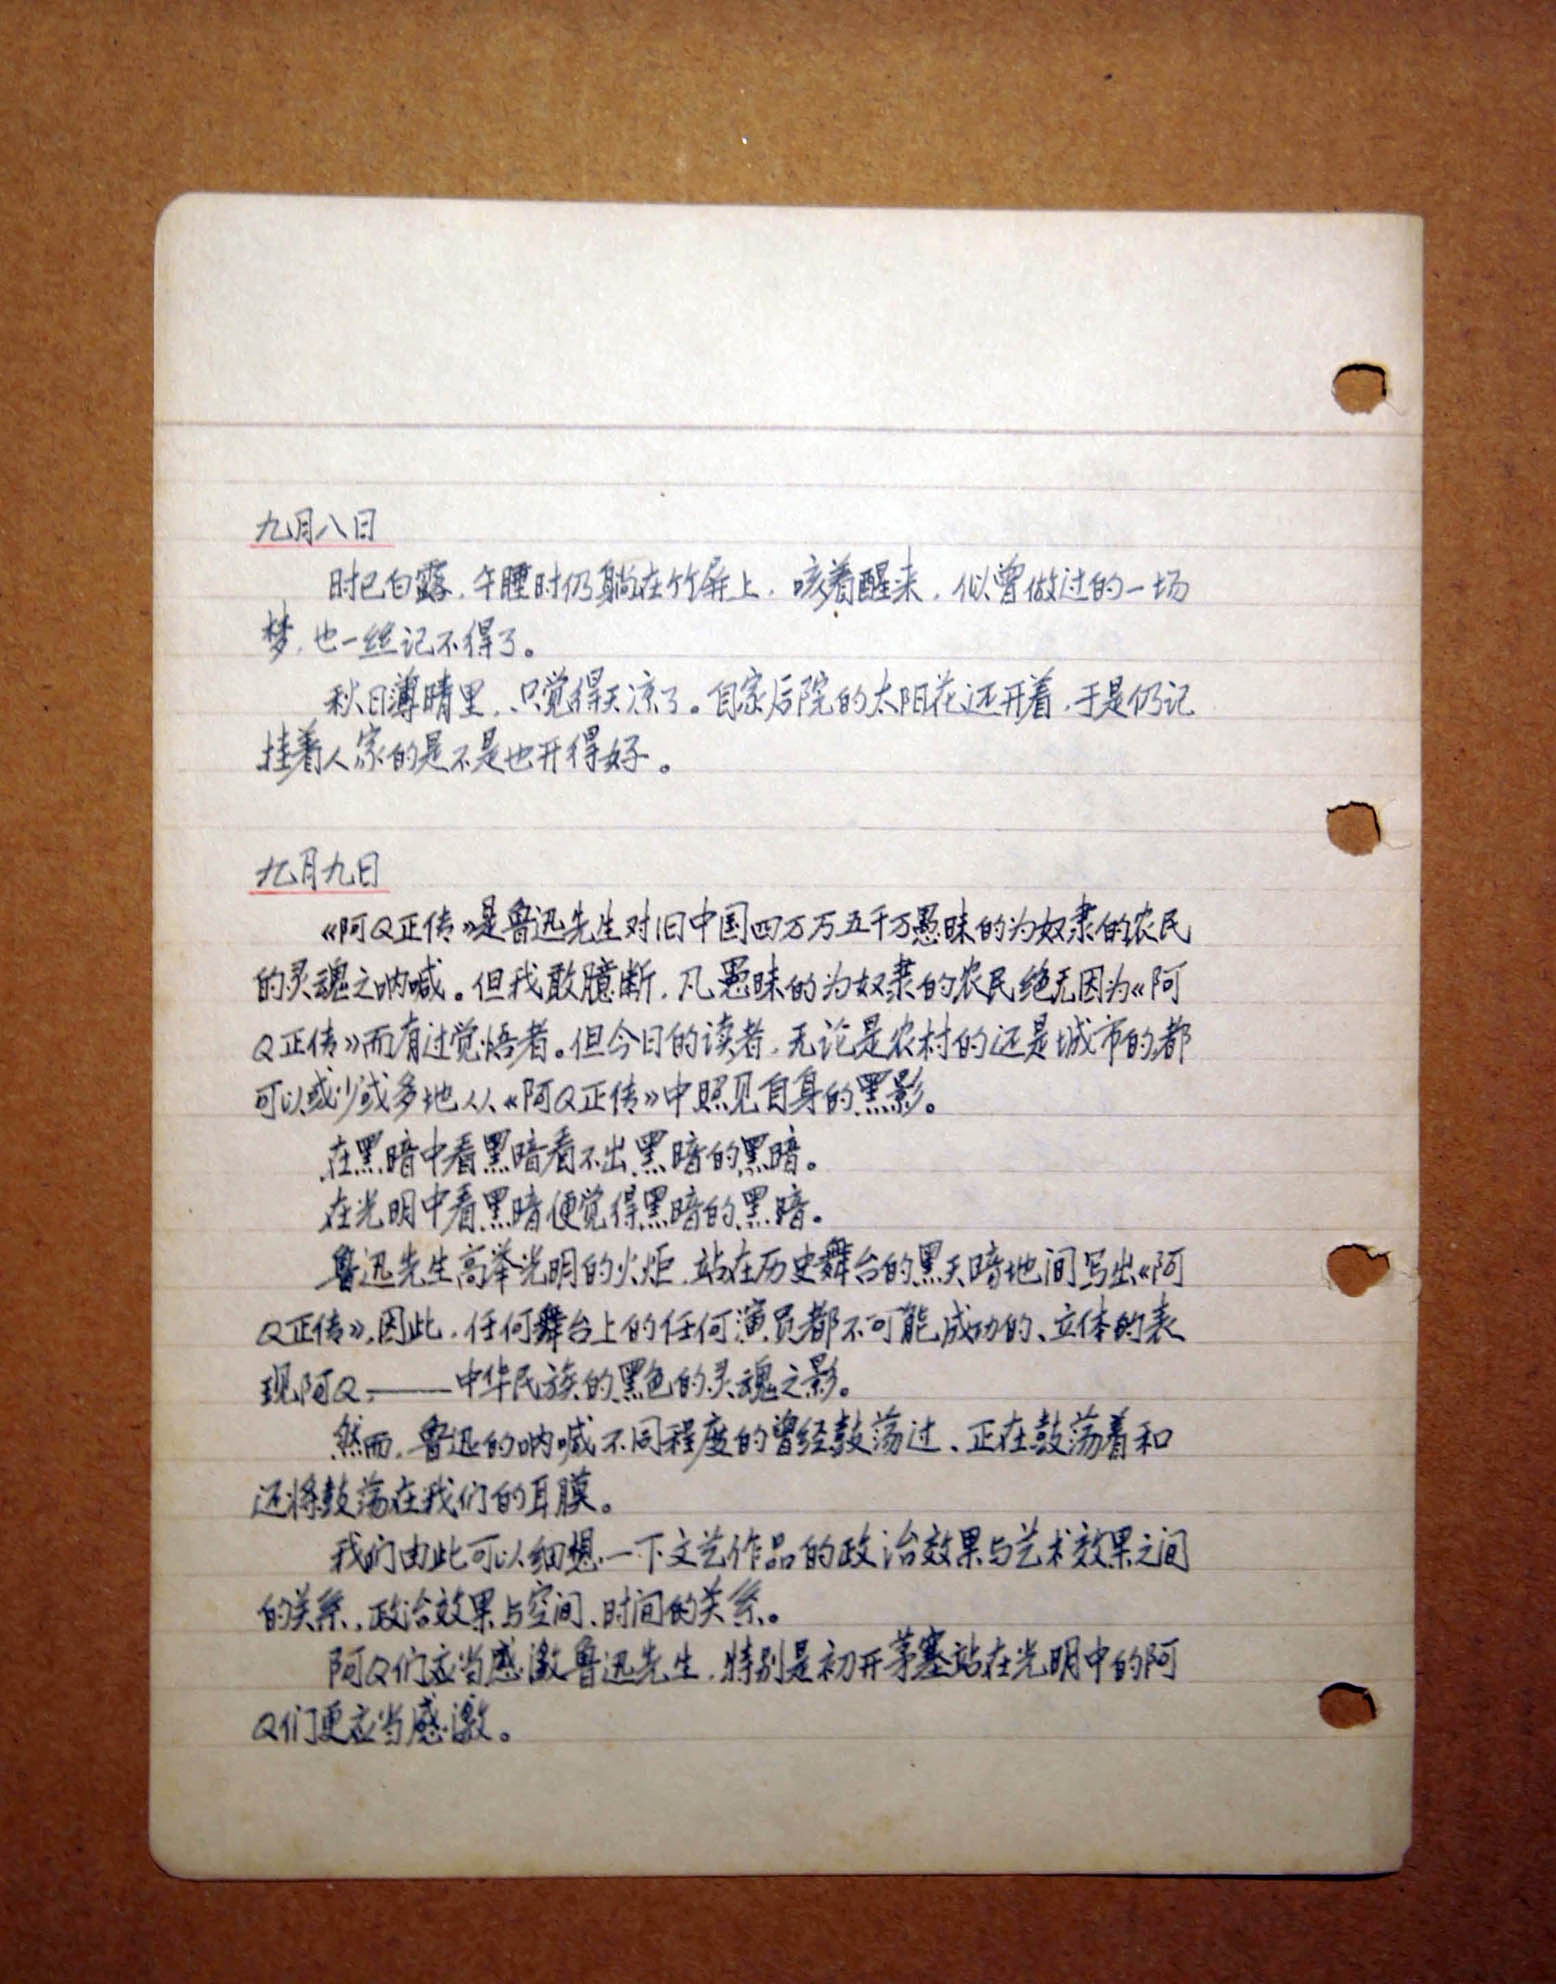 九月八日
时已白露，午睡时仍躺在竹屏上，咳着醒来，似曾做过的一场
梦，也一丝记不得了。
秋日薄晴里，只觉得天凉了。自家后院的太阳花还开着，于是仍记
挂着人家的是不是也开得好。
九月九日
《阿Q正传》是鲁迅先生对旧中国四万万五千万愚昧的为奴隶的农民
的灵魂之呐喊。但我敢臆断，凡愚昧的为奴隶的农民绝无因为《阿
Q正传》而有过觉悟者。但今日的读者，无论是农村的还是城市的都
可以或少或多地从《阿Q正传》中照见自身的黑影。
在黑暗中看黑暗看不出黑暗的黑暗。
在光明中看黑暗便觉得黑暗的黑暗。
鲁迅先生高举光明的火炬，站在历史舞台的黑天暗地间写出《阿
Q正传》，因此，任何舞台上的任何演员都不可能成功的、立体的表
现阿Q，——中华民族的黑色的灵魂之影。
然而，鲁迅的呐喊不同程度的曾经鼓荡过、正在鼓荡着和
还将鼓荡在我们的耳膜。
我们由此可以细想一下文艺作品的政治效果与艺术效果之间
的关系，政治效果与空间、时间的关系。
阿Q们应当感激鲁迅先生，特别是初开茅塞站在光明中的阿
Q们更应当感激。